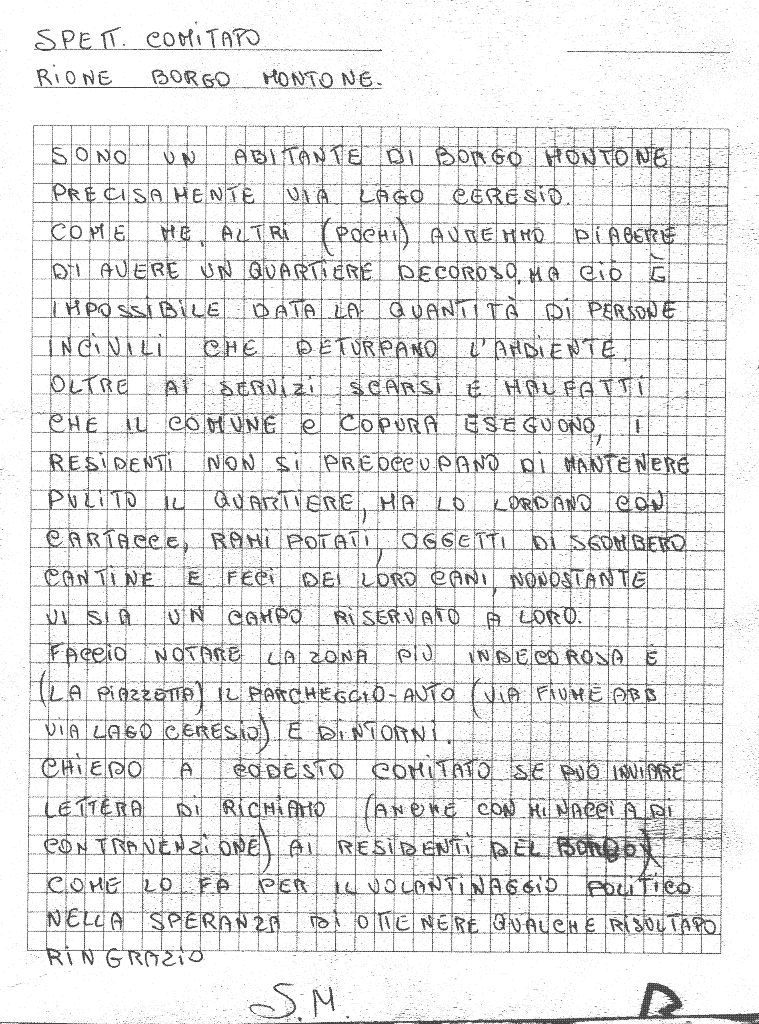 SPETT. COMITATO
RIONE BORGO MONTONE.
SONO UN ABITANTE DI BORGO MONTONE
PRECISAMENTE VIA LAGO CERESIO.
COME ME, ALTRI (POCHI) AVREMMO PIABERE
DI AVERE UN QUARTIERE DECOROSO, MA CIÒ È
IMPOSSIBILE DATA LA QUANTITÀ DI PERSONE
INCIVILI CHE DETURPANO L'AMBIENTE.
OLTRE AI SERVIZI SCARSI E MALFATTI
CHE IL COMUNE e COPURA ESEGUONO, I
RESIDENTI NON SI PREOCCUPANO DI MANTENERE
PULITO IL QUARTIERE, MA LO LORDANO CON
CARTACCE, RAMI POTATI, OGGETTI DI SGOMBERO
CANTINE E FECI DEI LORO CANI, NONOSTANTE
VI SIA UN CAMPO RISERVATO A LORO.
FACCIO NOTARE LA ZONA PIÙ INDECOROSA È
(LA PIAZZETTA) IL PARCHEGGIO-AUTO (VIA FIUME ABB
VIA LAGO CERESIO) E DINTORNI.
CHIEDO A CODESTO COMITATO SE PUÒ INVIARE
LETTERA DI RICHIAMO (ANCHE CON MINACCIA DI
CONTRAVENZIONE) AI RESIDENTI DEL BORGO)
COME LO FA PER IL VOLANTINAGGIO POLITICO
NELLA SPERANZA DI OTTENERE QUALCHE RISULTATO
RINGRAZIO
S.M.